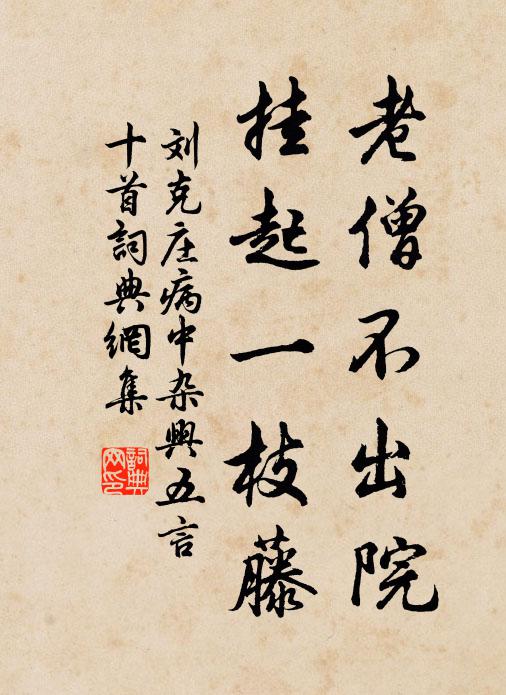 老僧不出院
挂起一枝藤
刘克庄病中杂興五言
十首詞典網集
詞典网印